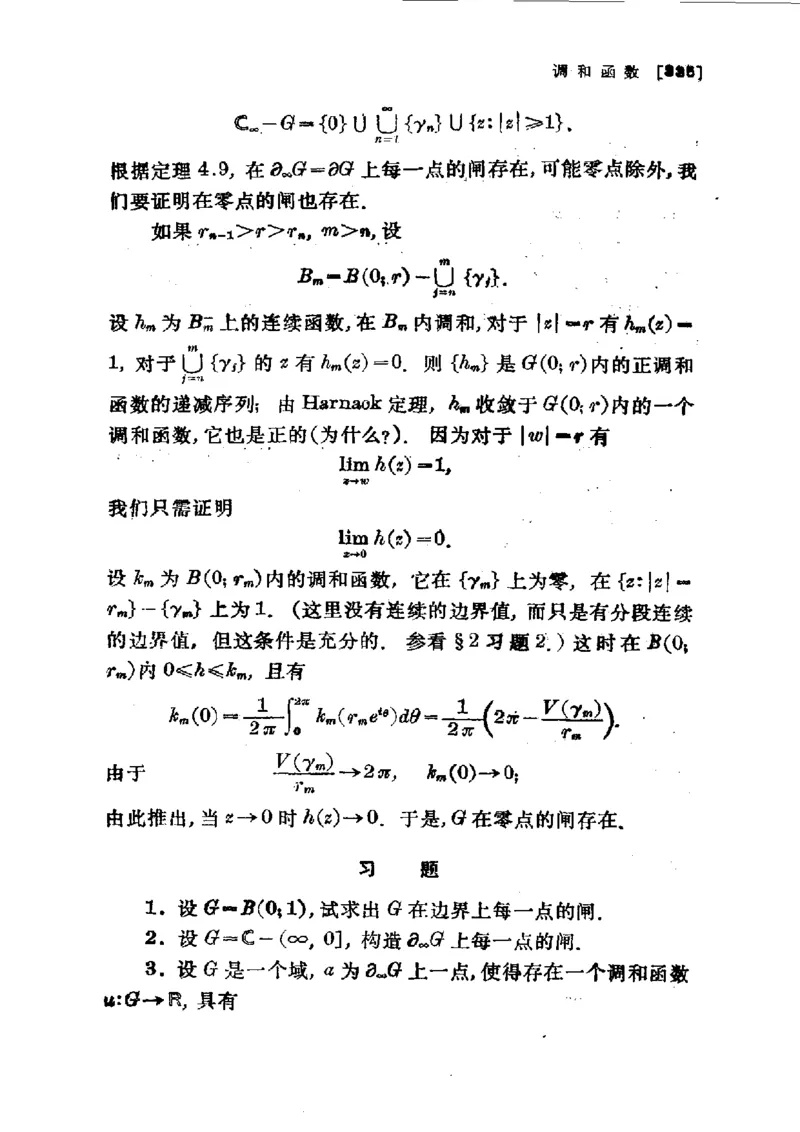 调和函数 [335]
ℂ∞−G={0}∪⋃_{n=1}^{∞}{γₙ}∪{z:|z|⩾1}.
根据定理 4.9, 在 ∂∞G=∂G 上每一点的闸存在, 可能零点除外, 我
们要证明在零点的闸也存在.
如果 rₙ₋₁>r>rₙ, m>n, 设
Bₘ=B(0; r)−⋃_{j=n}^{m}{γⱼ}.
设 hₘ 为 Bₘ⁻ 上的连续函数, 在 Bₘ 内调和, 对于 |z|=r 有 hₘ(z)=
1, 对于 ⋃_{j=n}^{m}{γⱼ} 的 z 有 hₘ(z)=0. 则 {hₘ} 是 G(0; r) 内的正调和
函数的递减序列; 由 Harnack 定理, hₘ 收敛于 G(0; r) 内的一个
调和函数, 它也是正的(为什么?). 因为对于 |w|=r 有
lim_{z→w} h(z)=1,
我们只需证明
lim_{z→0} h(z)=0.
设 kₘ 为 B(0; rₘ)内的调和函数, 它在 {γₘ} 上为零, 在 {z:|z|=
rₘ}−{γₘ} 上为 1. (这里没有连续的边界值, 而只是有分段连续
的边界值, 但这条件是充分的. 参看 §2 习题 2.) 这时在 B(0;
rₘ)内 0⩽h⩽kₘ, 且有
kₘ(0)=\frac{1}{2π}∫_{0}^{2π} kₘ(rₘe^{iθ})dθ=\frac{1}{2π}(2π−\frac{V(γₘ)}{rₘ}).
由于 \frac{V(γₘ)}{rₘ}→2π, kₘ(0)→0;
由此推出, 当 z→0 时 h(z)→0. 于是, G 在零点的闸存在.
习 题
1. 设 G=B(0; 1), 试求出 G 在边界上每一点的闸.
2. 设 G=ℂ−(∞, 0], 构造 ∂∞G 上每一点的闸.
3. 设 G 是一个域, a 为 ∂∞G 上一点, 使得存在一个调和函数
u:G→ℝ, 具有